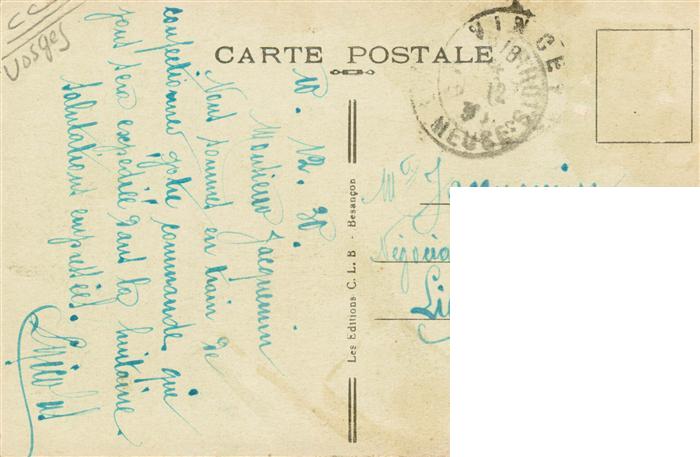 CC
Vosges
CARTE POSTALE
10. 12. 30
Monsieur Jacquemin
Nous sommes en train de
confectionner votre commande que
vous sera expédiée sans la huitaine.
salutations empressées.
Les Editions C. L. B - Besançon
VINCE
18
12
MEUSE
Mr Jacquemin
Négocia
Li